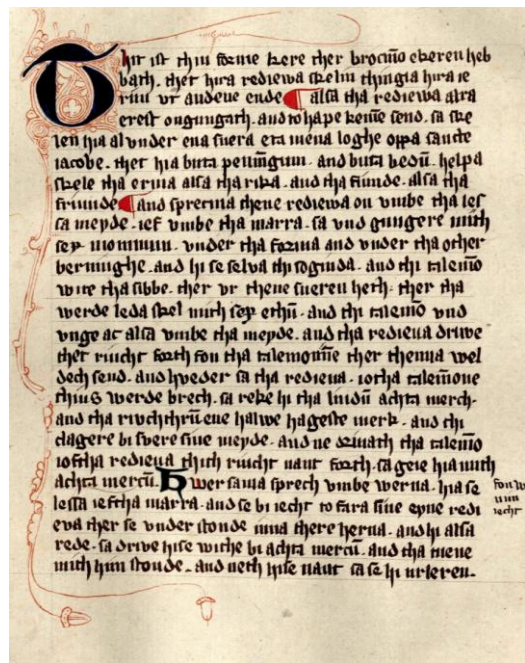 Thit ist thiu forme kere ther brocmēo ekeren heb
bath. thet hira rediewa skelin thingia hira ie
riin vt andeue ende alsa tha rediewa alra
erest ongungath. and to hape kemē send. sa ske
len hia al vnder ena suera eta mena loghe oppa sancte
iacobe. thet hia buta pennīgum. and buta bedū. helpa
skele tha erma alsa tha rika. and tha fiunde. alsa tha
friunde and sprecma thene rediewa on vmbe tha les
sa meyde. ief vmbe tha marra. sa vnd gungere mith
sex monnum. vnder tha forma and vnder tha other
bermnghe. and hi se selva thi soginda. and thi talemō
wite tha sibbe. ther vr thene sueren heth. ther tha
werde leda skel mith sex ethū. and thi talemō vnd
vnge ac alsa vmbe tha meyde. and tha redieua driwe
thet riucht forth fon tha talemonne ther thenna wel
dech send. and hveder sa tha redieua. iotha talemōne
thius werde brech. sa reke hi tha liudū achta merch.
and tha riuchthrū ene halwe hageste merk. and thi
clagere bi svere sine meyde. and ne driuath tha talemō
ioftha redieua thich riucht naut forth. sa geie hia mith
achta mercū. Hwer sama sprech vmbe werua. hia se
lessa ieftha marra. and se bi iecht to fara sine epne redi
eva ther se vnder stonde inna there herna. and hi alsa
rede. sa drive hise withe bi achta mercū. and tha mene
mith him stonde. and neth hise naut sa se hi urleren.
fon w
unn
iecht